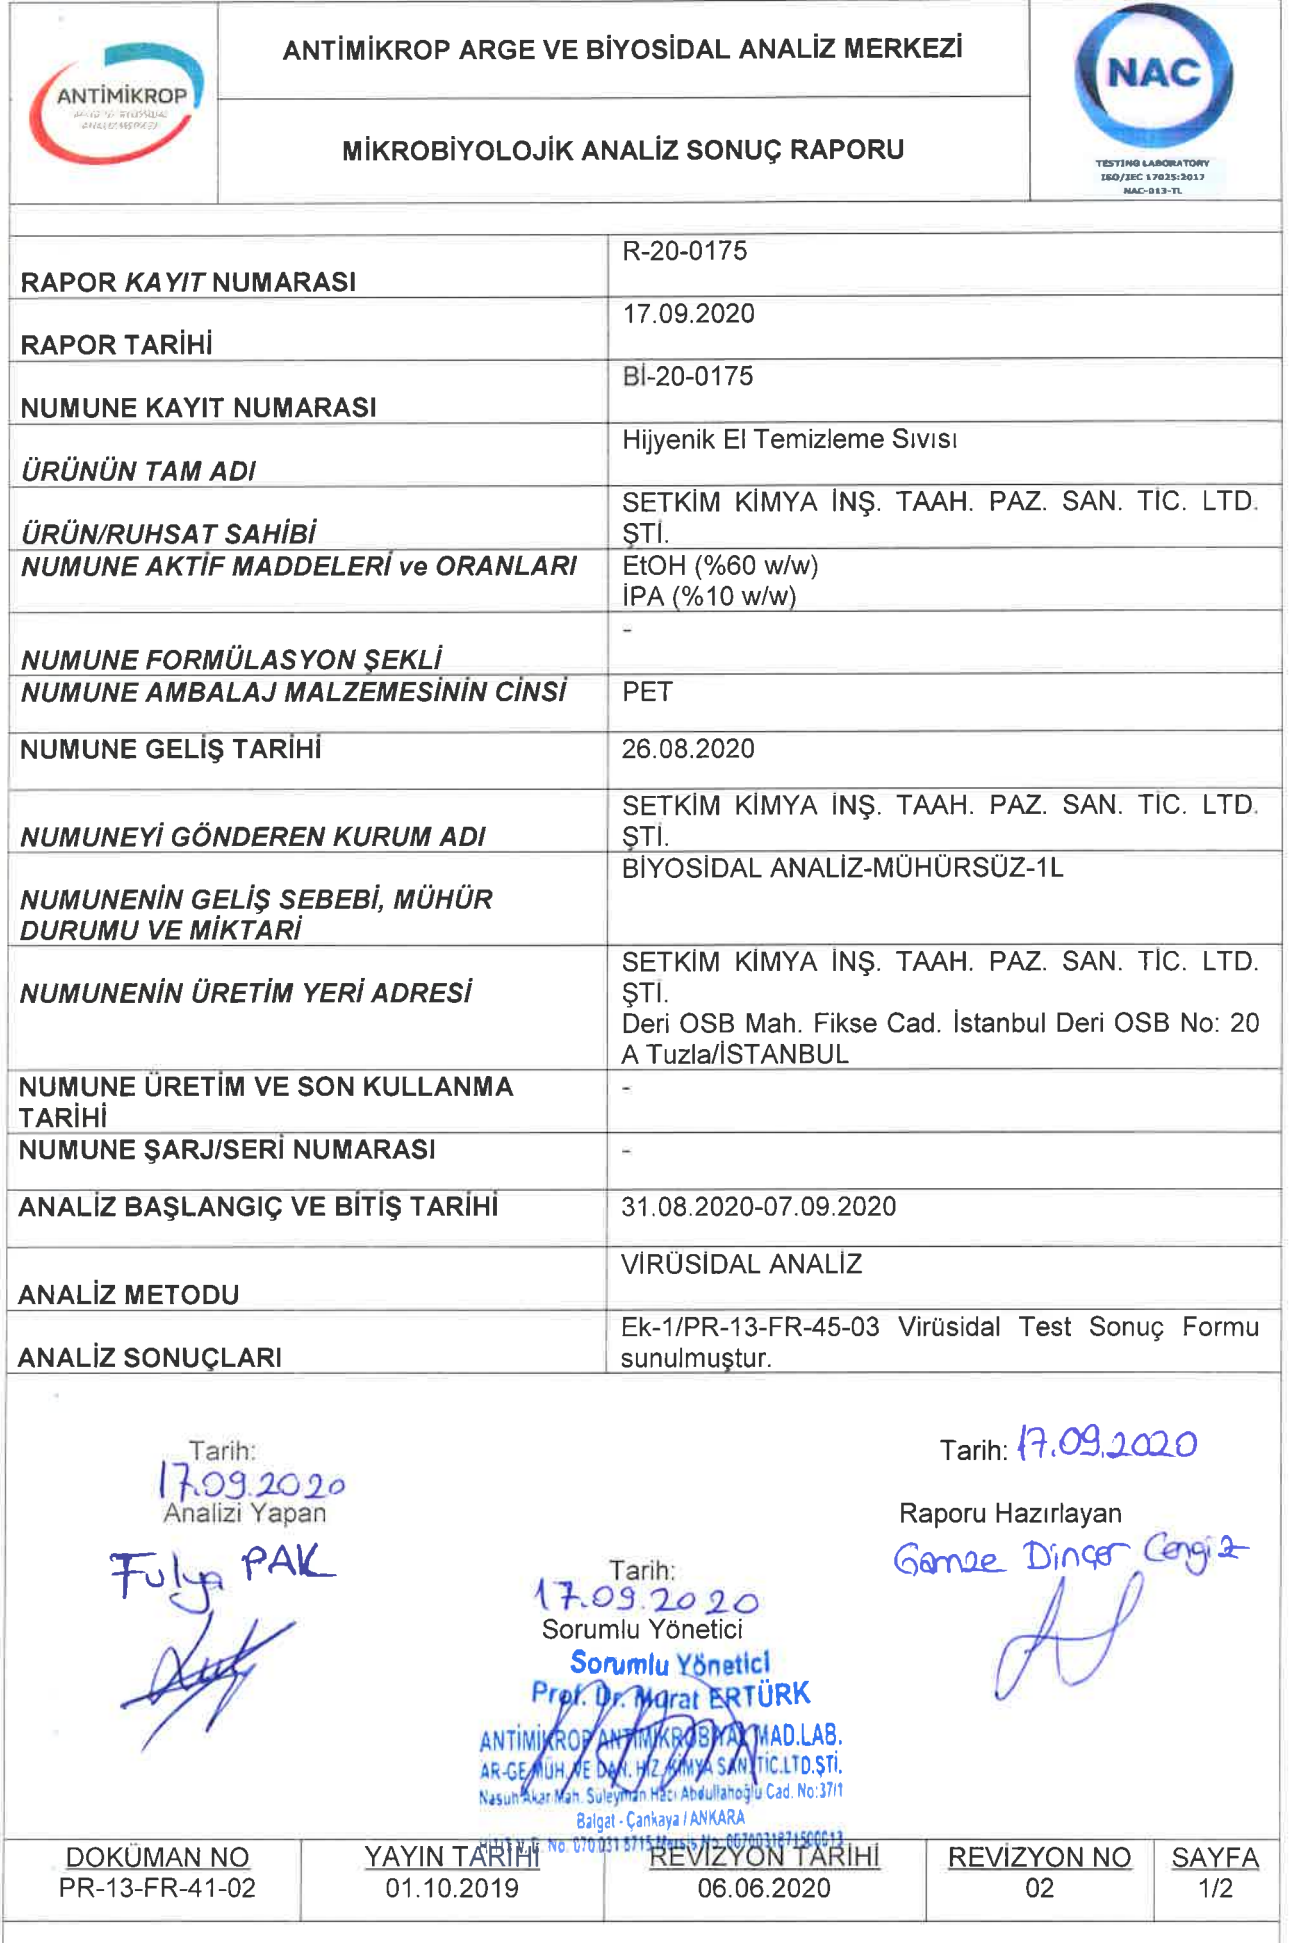 ANTİMİKROP
ANTİMİKROP ARGE VE BİYOSİDAL ANALİZ MERKEZİ
MİKROBİYOLOJİK ANALİZ SONUÇ RAPORU
NAC
TESTING LABORATORY
ISO/IEC 17025:2017
NAC-013-TL
RAPOR KAYIT NUMARASI
R-20-0175
RAPOR TARİHİ
17.09.2020
NUMUNE KAYIT NUMARASI
Bİ-20-0175
ÜRÜNÜN TAM ADI
Hijyenik El Temizleme Sıvısı
ÜRÜN/RUHSAT SAHİBİ
SETKİM KİMYA İNŞ. TAAH. PAZ. SAN. TİC. LTD.
ŞTİ.
NUMUNE AKTİF MADDELERİ ve ORANLARI
EtOH (%60 w/w)
İPA (%10 w/w)
NUMUNE FORMÜLASYON ŞEKLİ
-
NUMUNE AMBALAJ MALZEMESİNİN CİNSİ
PET
NUMUNE GELİŞ TARİHİ
26.08.2020
NUMUNEYİ GÖNDEREN KURUM ADI
SETKİM KİMYA İNŞ. TAAH. PAZ. SAN. TİC. LTD.
ŞTİ.
NUMUNENİN GELİŞ SEBEBİ, MÜHÜR
DURUMU VE MİKTARİ
BİYOSİDAL ANALİZ-MÜHÜRSÜZ-1L
NUMUNENİN ÜRETİM YERİ ADRESİ
SETKİM KİMYA İNŞ. TAAH. PAZ. SAN. TİC. LTD.
ŞTİ.
Deri OSB Mah. Fikse Cad. İstanbul Deri OSB No: 20
A Tuzla/İSTANBUL
NUMUNE ÜRETİM VE SON KULLANMA
TARİHİ
-
NUMUNE ŞARJ/SERİ NUMARASI
-
ANALİZ BAŞLANGIÇ VE BİTİŞ TARİHİ
31.08.2020-07.09.2020
ANALİZ METODU
VİRÜSİDAL ANALİZ
ANALİZ SONUÇLARI
Ek-1/PR-13-FR-45-03 Virüsidal Test Sonuç Formu
sunulmuştur.
Tarih:
17.09.2020
Analizi Yapan
Fulya PAK
Tarih: 17.09.2020
Raporu Hazırlayan
Gamze Dinçer Cengiz
Tarih:
17.09.2020
Sorumlu Yönetici
Sorumlu Yönetici
Prof. Dr. Murat ERTÜRK
ANTİMİKROP ANTİMİKROBİYAL MAD.LAB.
AR-GE MÜH. VE DAN. HİZ. KİMYA SAN. TİC.LTD.ŞTİ.
Nasuh Akar Mah. Süleyman Hacı Abdullahoğlu Cad. No:37/1
Balgat - Çankaya / ANKARA
No: 070 031 8715 Mersis No: 0070031871500013
DOKÜMAN NO
PR-13-FR-41-02
YAYIN TARİHİ
01.10.2019
REVİZYON TARİHİ
06.06.2020
REVİZYON NO
02
SAYFA
1/2